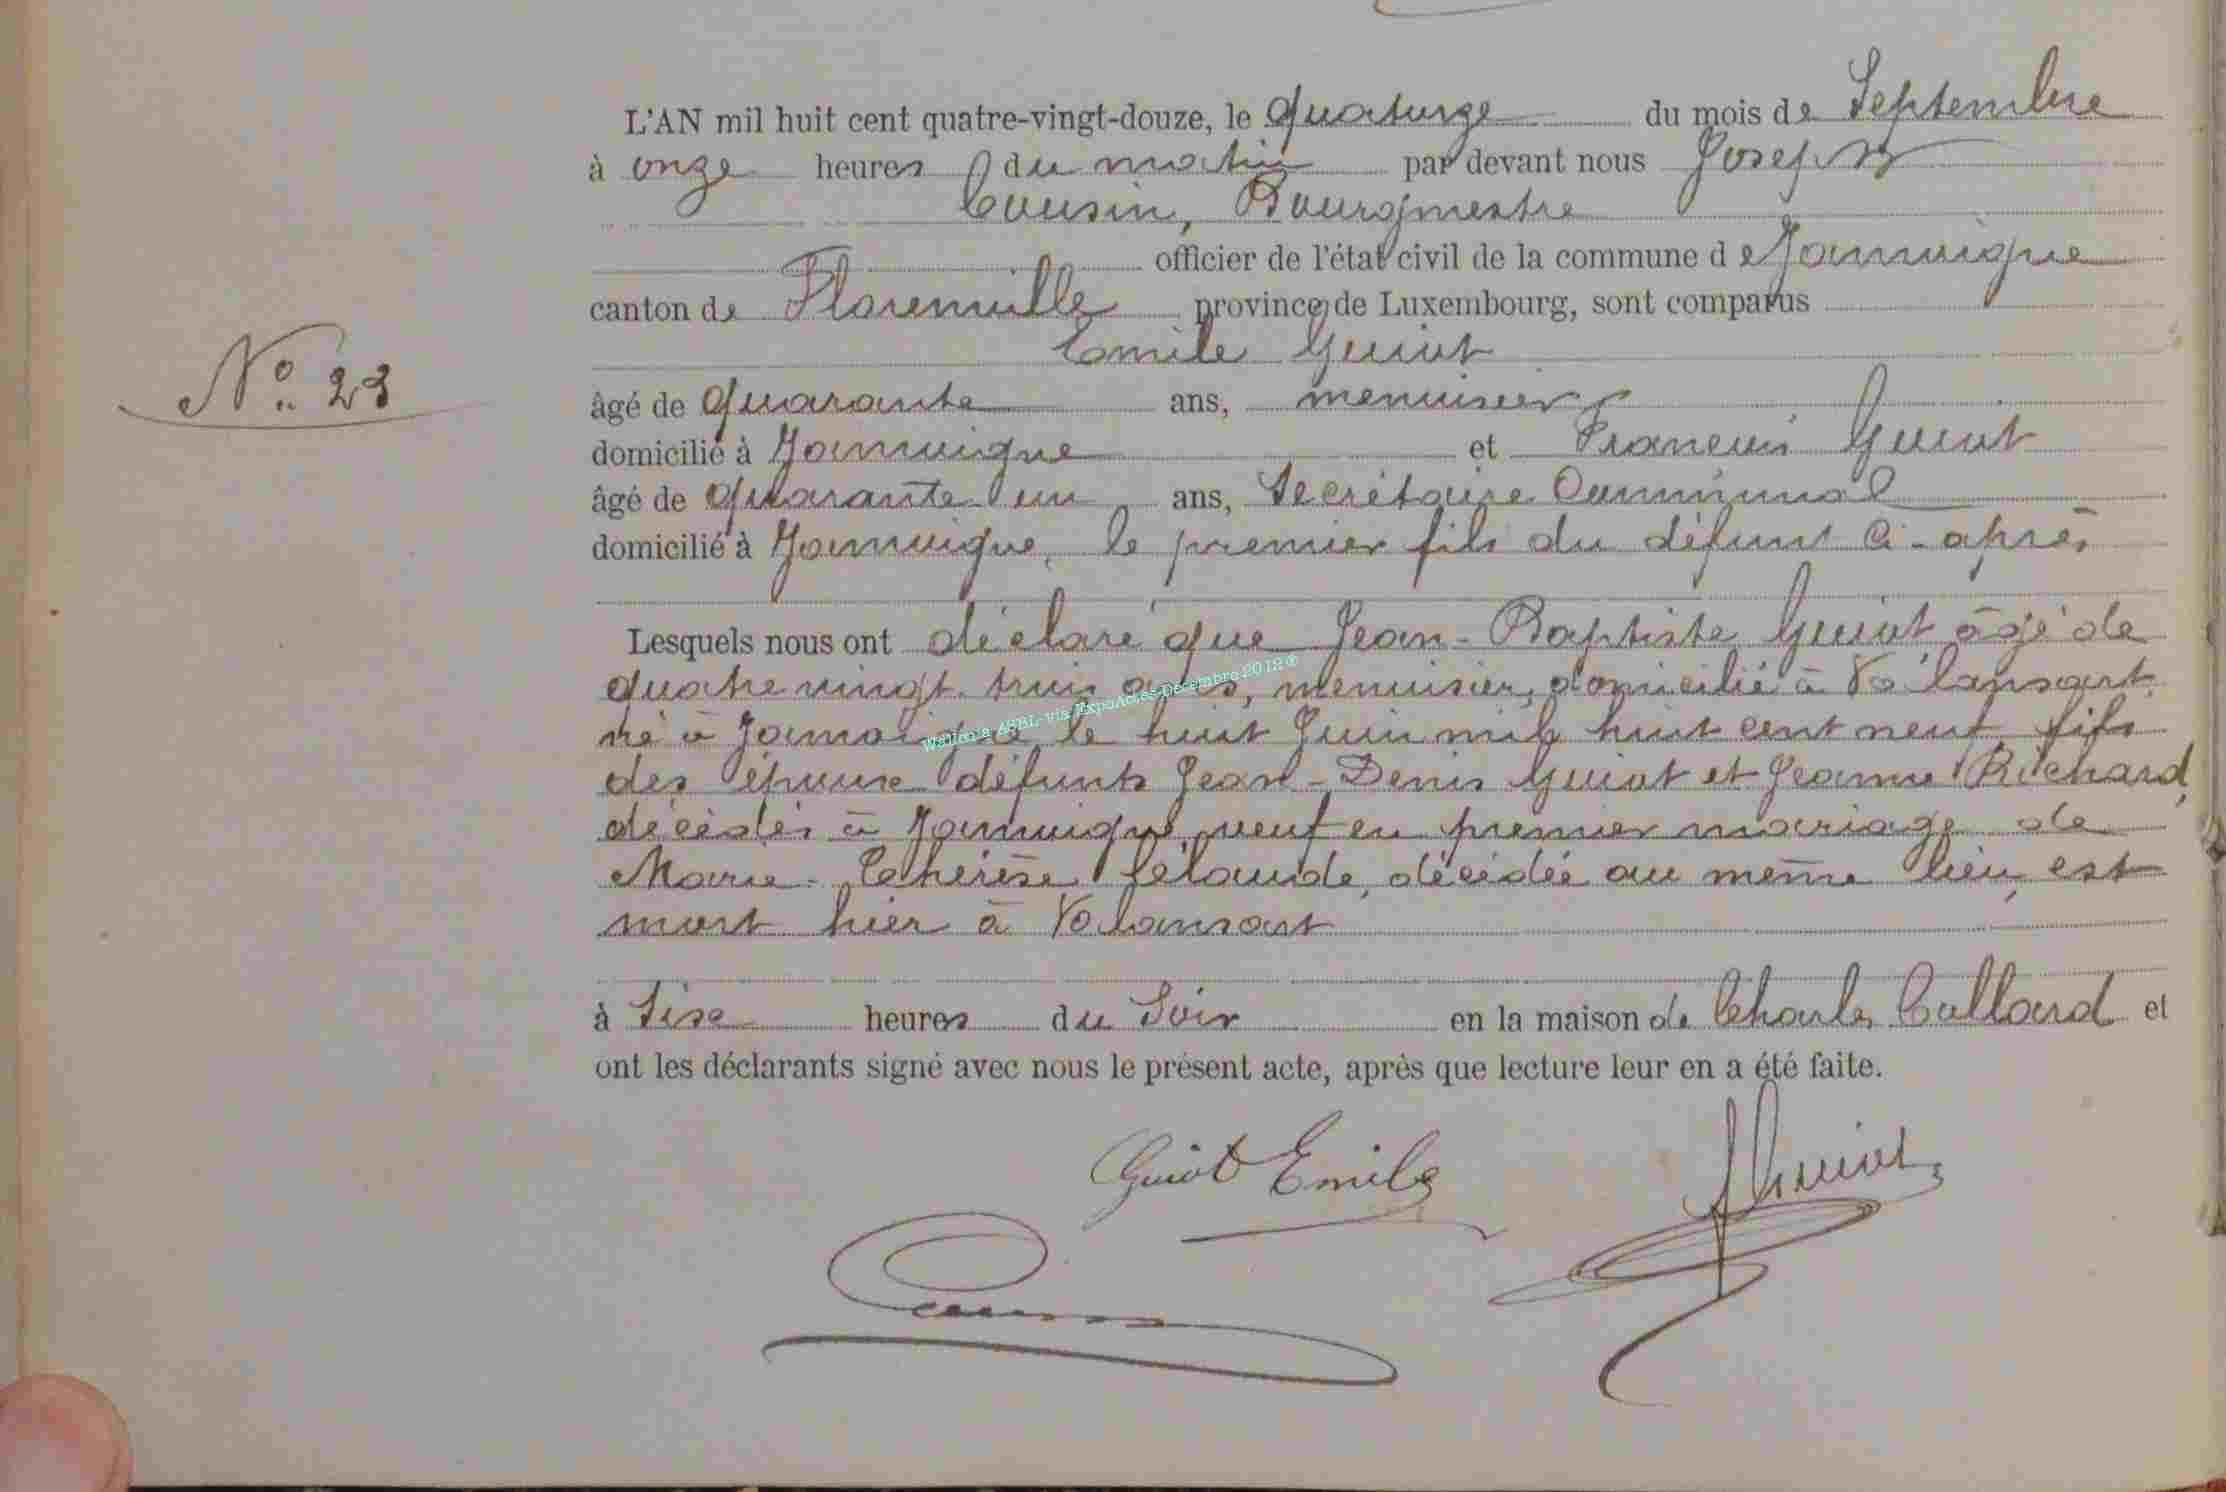 L'AN mil huit cent quatre-vingt-douze, le quatorze du mois de Septembre
à onze heures du matin par devant nous Joseph
Cousin, Bourgmestre
officier de l'état civil de la commune de Jamoigne
canton de Florenville province de Luxembourg, sont comparus
Emile Guiot
N° 23
âgé de quarante ans, menuisier
domicilié à Jamoigne et François Guiot
âgé de quarante un ans, Secrétaire Communal
domicilié à Jamoigne, le premier fils du défunt ci-après
Lesquels nous ont déclaré que Jean-Baptiste Guiot âgé de
quatre vingt trois ans, menuisier, domicilié à Valansart
né à Jamoigne le huit Juin mil huit cent neuf fils
des époux défunts Jean-Denis Guiot et Jeanne Richard,
décédés à Jamoigne, veuf en premier mariage de
Marie-Thérèse, décédée au même lieu, est
mort hier à Valansart
à Six heures du Soir en la maison de Charles Collard et
ont les déclarants signé avec nous le présent acte, après que lecture leur en a été faite.
Guiot Emile
Guiot
Wallonia ASBL via ExpoActes-Décembre 2012®